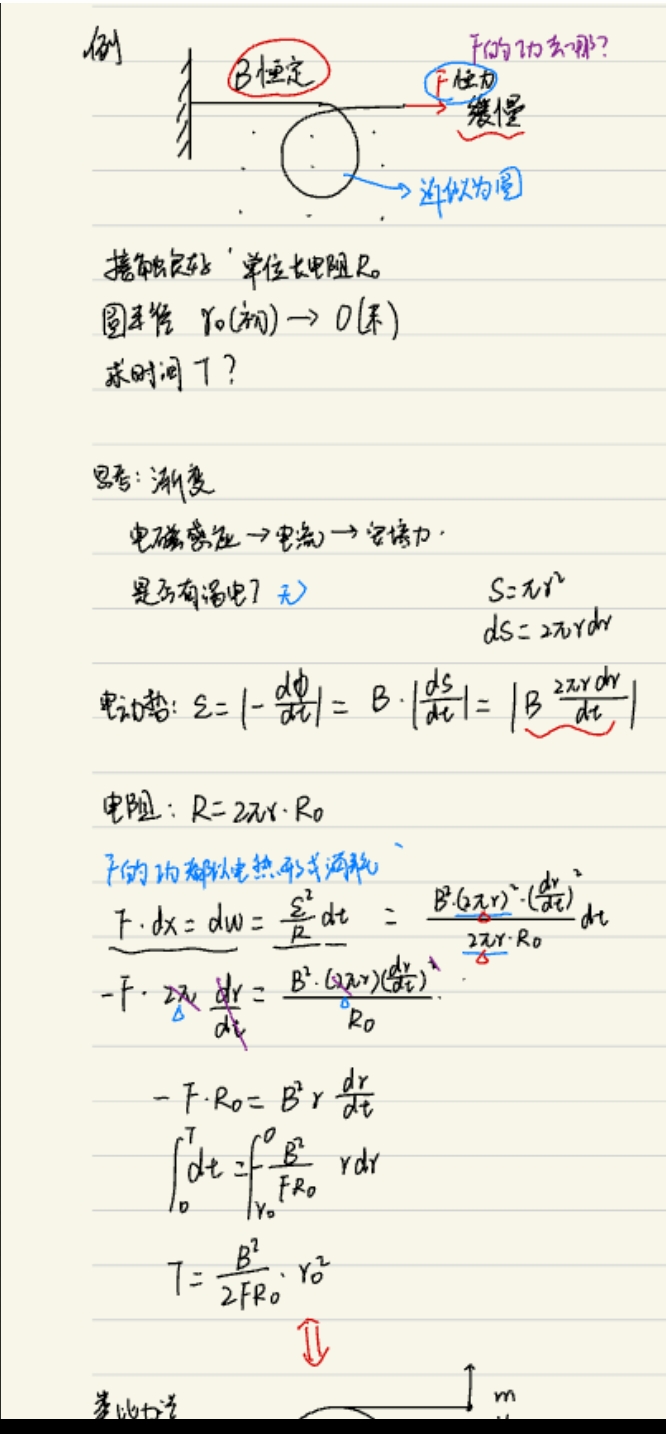 例
F的功去哪?
B恒定
F恒力
缓慢
近似为圆
接触良好,单位长电阻R₀
圆半径 r₀(初)→0(末)
求时间T?
思考:渐变
电磁感应→电流→安培力.
是否有漏电? 无
S=πr²
dS=2πrdr
电动势: ε=|-dΦ/dt|=B·|dS/dt|=|B 2πrdr/dt|
电阻: R=2πr·R₀
F的功都以电热形式消耗
F·dx=dW=ε²/R dt = B²·(2πr)²·(dr/dt)²/2πr·R₀ dt
-F·2π dr/dt = B²·(2πr)(dr/dt)²/R₀
-F·R₀=B²r dr/dt
∫₀ᵀdt=∫_{r₀}^{0}-B²/FR₀ rdr
T=B²/2FR₀·r₀²
⇕
m